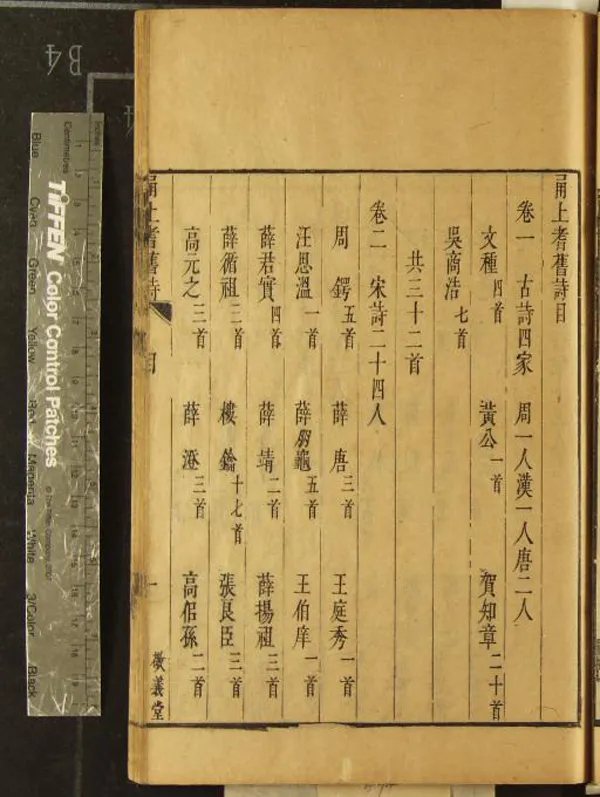 甬上耆舊詩目
卷一 古詩四家 周一人漢一人唐二人
文種四首 黃公一首 賀知章二十首
吳商浩七首
共三十二首
卷二 宋詩二十四人
周鍔五首 薛唐三首 王庭秀一首
汪思溫一首 薛朋龜五首 王伯庠一首
薛君實四首 薛靖二首 薛揚祖三首
薛循祖三首 樓鑰十七首 張良臣三首
高元之三首 薛澄三首 高似孫二首
甬上耆舊詩 目 一 敬義堂
B4
Inches
Centimetres
TIFFEN Color Control Patches
© The Tiffen Company, 2007
Blue
Cyan
Green
Yellow
Red
Magenta
White
3/Color
Black